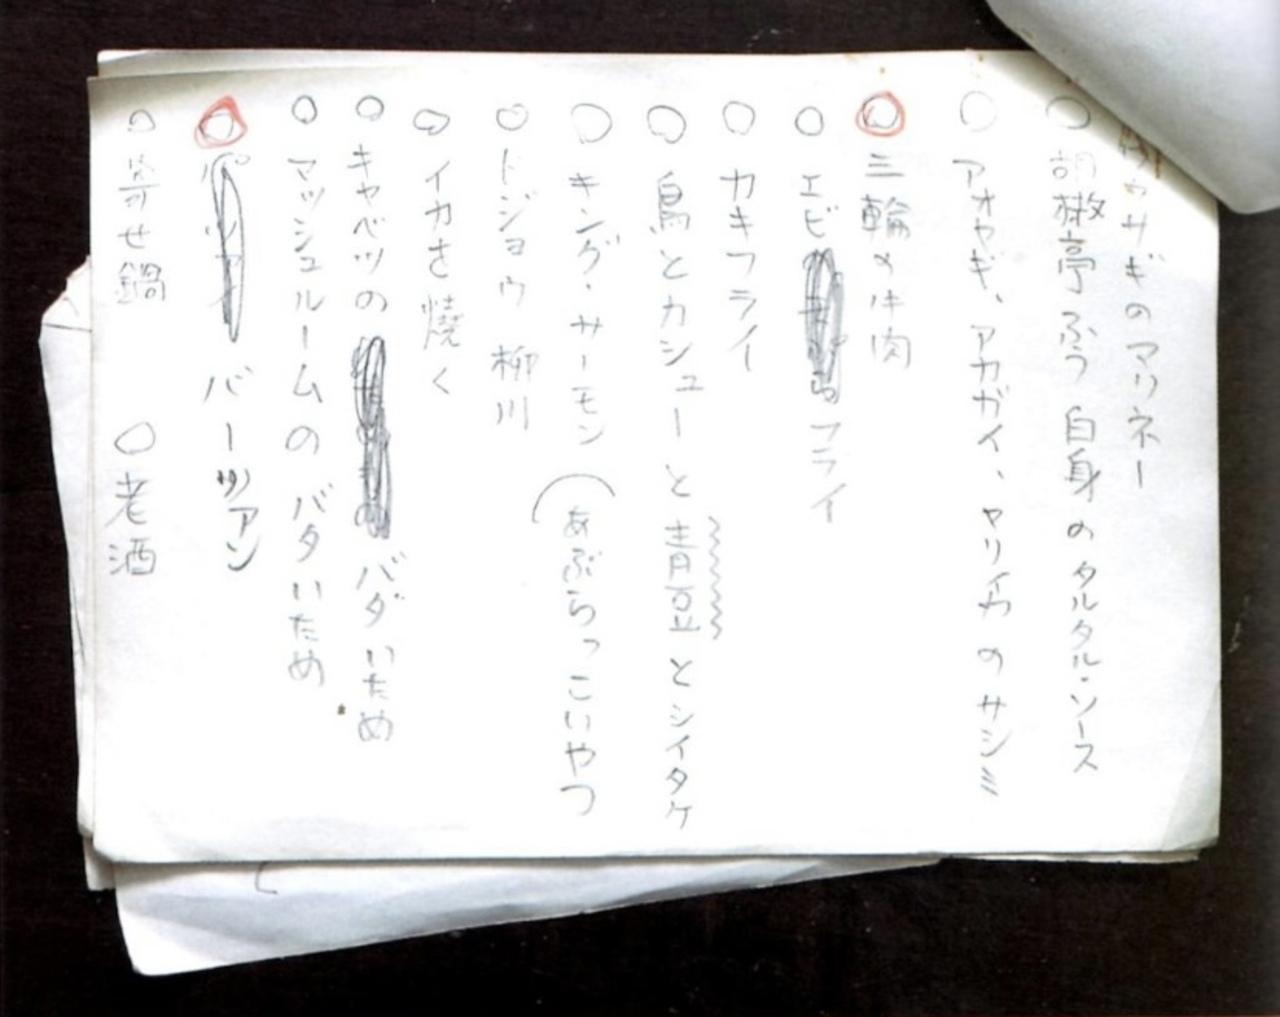 ワカサギのマリネー
○ 胡椒亭ふう 白身のタルタル・ソース
○ アオヤギ、アカガイ、ヤリイカのサシミ
○ 三輪の牛肉
○ エビ フライ
○ カキフライ
○ 鳥とカシューと青豆とシイタケ
○ キング・サーモン (あぶらっこいやつ
○ ドジョウ 柳川
○ イカを焼く
○ キャベツの バダいため
○ マッシュルームのバタいため
○ バーツアン
○ 寄せ鍋 ○ 老酒